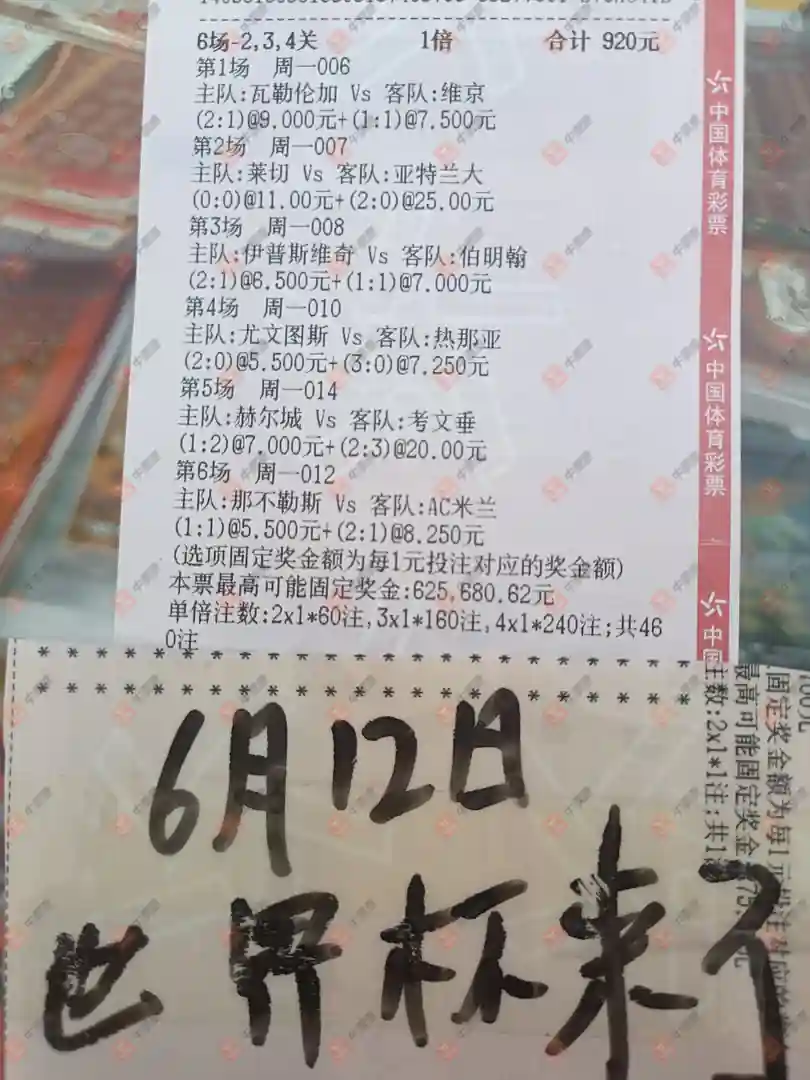 6场-2,3,4关 1倍 合计 920元
第1场 周一006
主队:瓦勒伦加 Vs 客队:维京
(2:1)@9.000元+(1:1)@7.500元
第2场 周一007
主队:莱切 Vs 客队:亚特兰大
(0:0)@11.00元+(2:0)@25.00元
第3场 周一008
主队:伊普斯维奇 Vs 客队:伯明翰
(2:1)@6.500元+(1:1)@7.000元
第4场 周一010
主队:尤文图斯 Vs 客队:热那亚
(2:0)@5.500元+(3:0)@7.250元
第5场 周一014
主队:赫尔城 Vs 客队:考文垂
(1:2)@7.000元+(2:3)@20.00元
第6场 周一012
主队:那不勒斯 Vs 客队:AC米兰
(1:1)@5.500元+(2:1)@8.250元
(选项固定奖金额为每1元投注对应的奖金额)
本票最高可能固定奖金:625,680.62元
单倍注数:2x1*60注,3x1*160注,4x1*240注;共46
0注
中国体育彩票
中国体育彩票
中国
固定奖金额为每1元投注对应的
最高可能固定奖金
主数:2x1*1注;共1
6月12日
世界杯来了